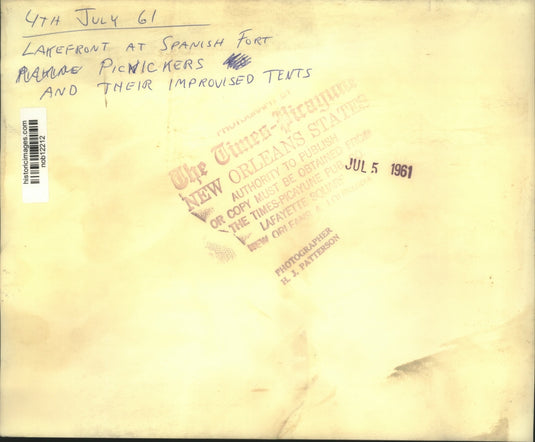 4TH JULY 61
LAKEFRONT AT SPANISH FORT
PICNICKERS
AND THEIR IMPROVISED TENTS
historicimages.com
nob12212
PHOTOGRAPH BY
The Times-Picayune
NEW ORLEANS STATES
AUTHORITY TO PUBLISH
OR COPY MUST BE OBTAINED FROM
THE TIMES-PICAYUNE PUB
LAFAYETTE SQUARE
NEW ORLEANS
JUL 5 1961
PHOTOGRAPHER
H. J. PATTERSON